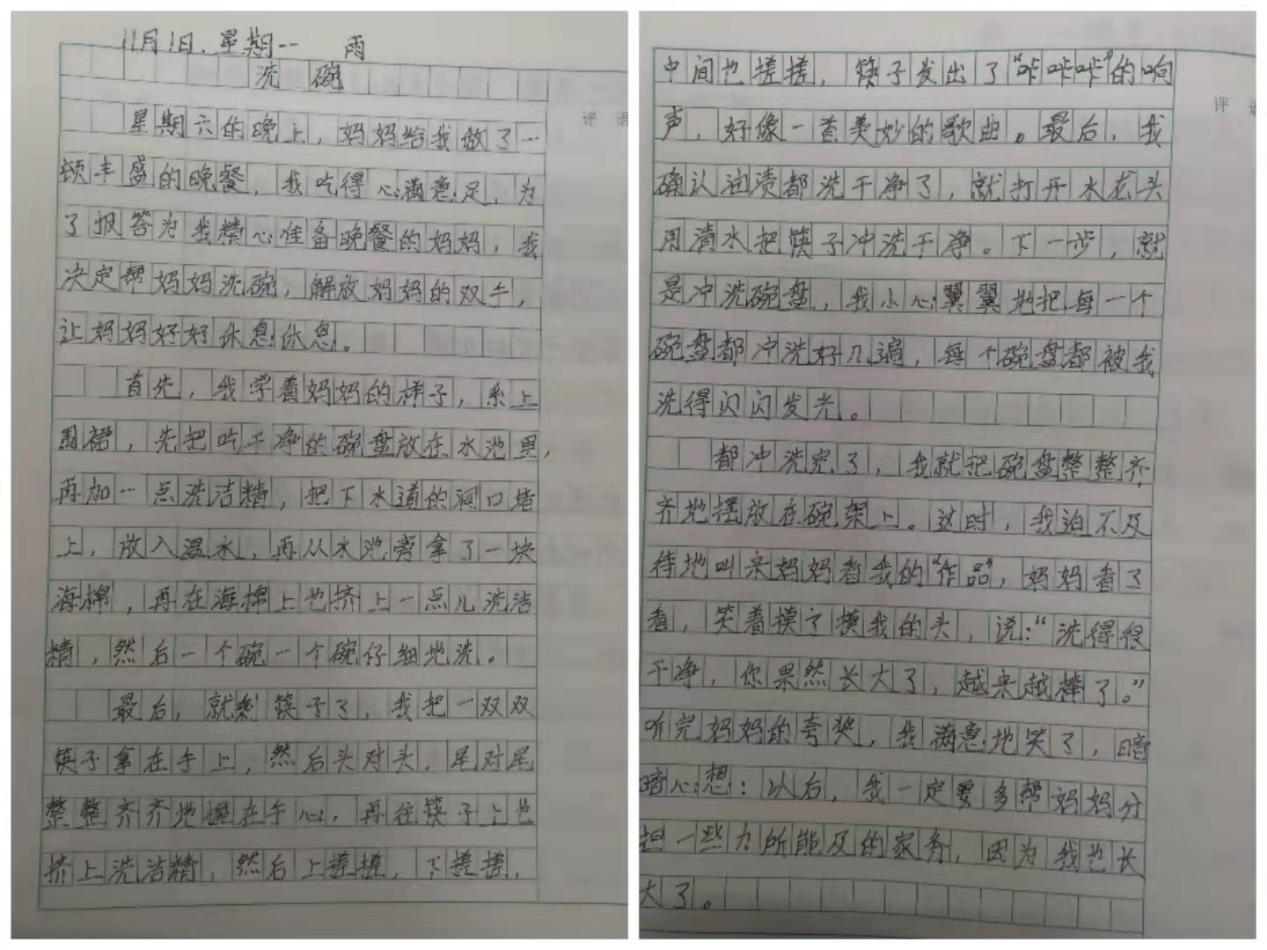 11月1日.星期一 雨
洗碗
星期六的晚上,妈妈给我做了一
顿丰盛的晚餐,我吃得心满意足,为
了报答为我精心准备晚餐的妈妈,我
决定帮妈妈洗碗,解放妈妈的双手,
让妈妈好好休息休息。
首先,我学着妈妈的样子,系上
围裙,先把吃干净的碗盘放在水池里,
再加一点洗洁精,把下水道的洞口堵
上,放入温水,再从水池旁拿了一块
海棉,再在海棉上也挤上一点儿洗洁
精,然后一个碗一个碗仔细地洗。
最后,就剩筷子了,我把一双双
筷子拿在手上,然后头对头,尾对尾
整整齐齐地握在手心,再在筷子上也
挤上洗洁精,然后上搓搓,下搓搓,
中间也搓搓,筷子发出了“咔咔咔”的响
声,好像一首美妙的歌曲。最后,我
确认油渍都洗干净了,就打开水龙头
用清水把筷子冲洗干净。下一步,就
是冲洗碗盘,我小心翼翼地把每一个
碗盘都冲洗好几遍,每个碗盘都被我
洗得闪闪发光。
都冲洗完了,我就把碗盘整整齐
齐地摆放在碗架上。这时,我迫不及
待地叫来妈妈看我的“作品”,妈妈看了
看,笑着摸了摸我的头,说:“洗得很
干净,你果然长大了,越来越棒了。”
听完妈妈的夸奖,我满意地笑了,暗
暗心想:以后,我一定要多帮妈妈分
担一些力所能及的家务,因为我也长
大了。
评语
评语